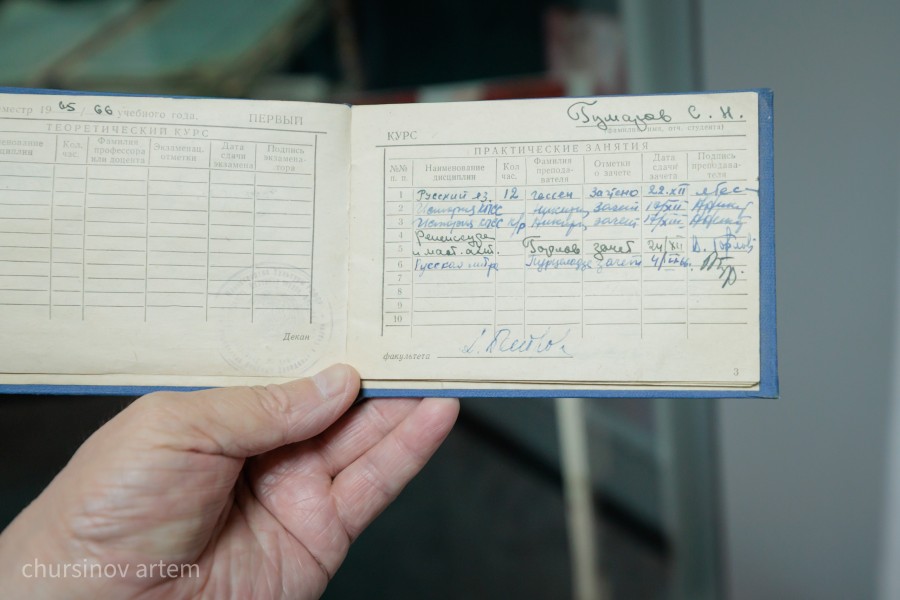 местр 19 65/66 учебного года. ПЕРВЫЙ
ТЕОРЕТИЧЕСКИЙ КУРС
нование
циплины
Кол.
час.
Фамилия
профессора
или доцента
Экзаменац.
отметки
Дата
сдачи
экзамена
Подпись
экзамена-
тора
Декан
КУРС
С. Н.
(фамилия, имя, отч. студента)
ПРАКТИЧЕСКИЕ ЗАНЯТИЯ
№№
п. п.
Наименование
дисциплин
Кол
час.
Фамилия
препода-
вателя
Отметки
о зачете
Дата
сдачи
зачета
Подпись
преподава-
теля
1 Русский яз. 12 зачтено 22.XII
2 История КПСС зачет 17/XII
3 История КПСС зачет 17/XII
4 Режиссура
5 и маст. акт. зачет 24/XII
6 Русская зачет
7
8
9
10
факультета
3
chursinov artem